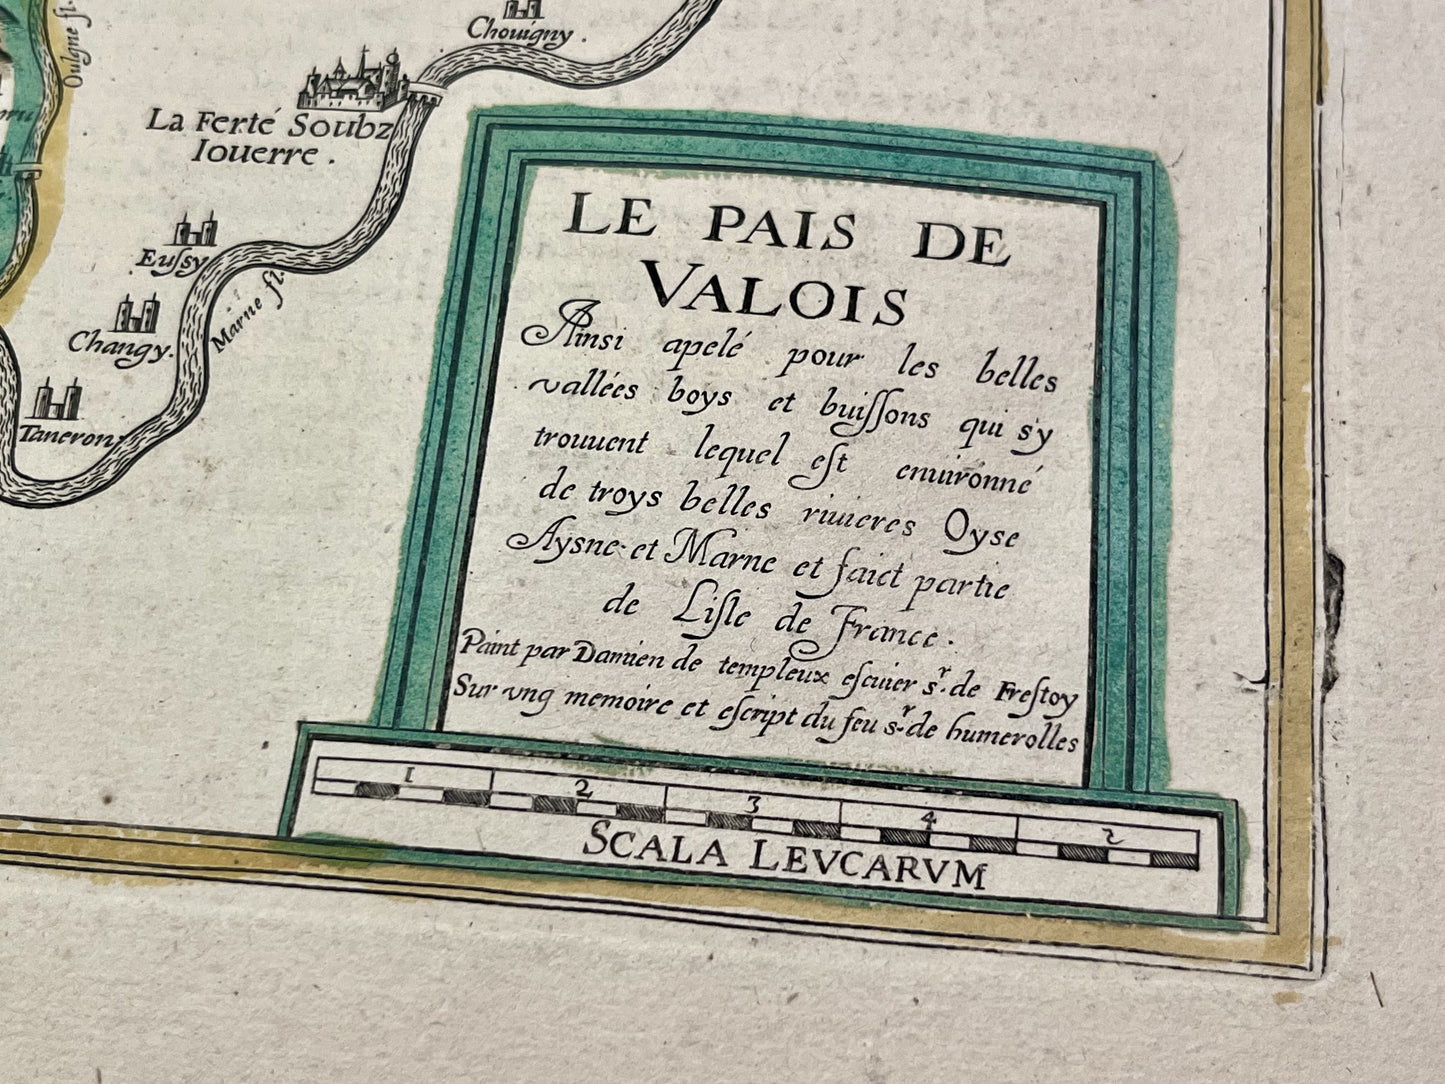 Chouigny.
Oulqne fl.
La Ferté Soubz
Iouerre.
Euſsy
Marne fl.
Changy.
Taneron
LE PAIS DE
VALOIS
Ainsi apelé pour les belles
vallées boys et buiſſons qui s'y
trouuent lequel eſt enuironné
de troys belles riuieres Oyse
Aysne et Marne et faict partie
de Liſle de France.
Paint par Damien de templeux eſcuier sr. de Freſtoy
Sur vng memoire et eſcript du feu sr. de humerolles
1 2 3 4 5
SCALA LEVCARVM